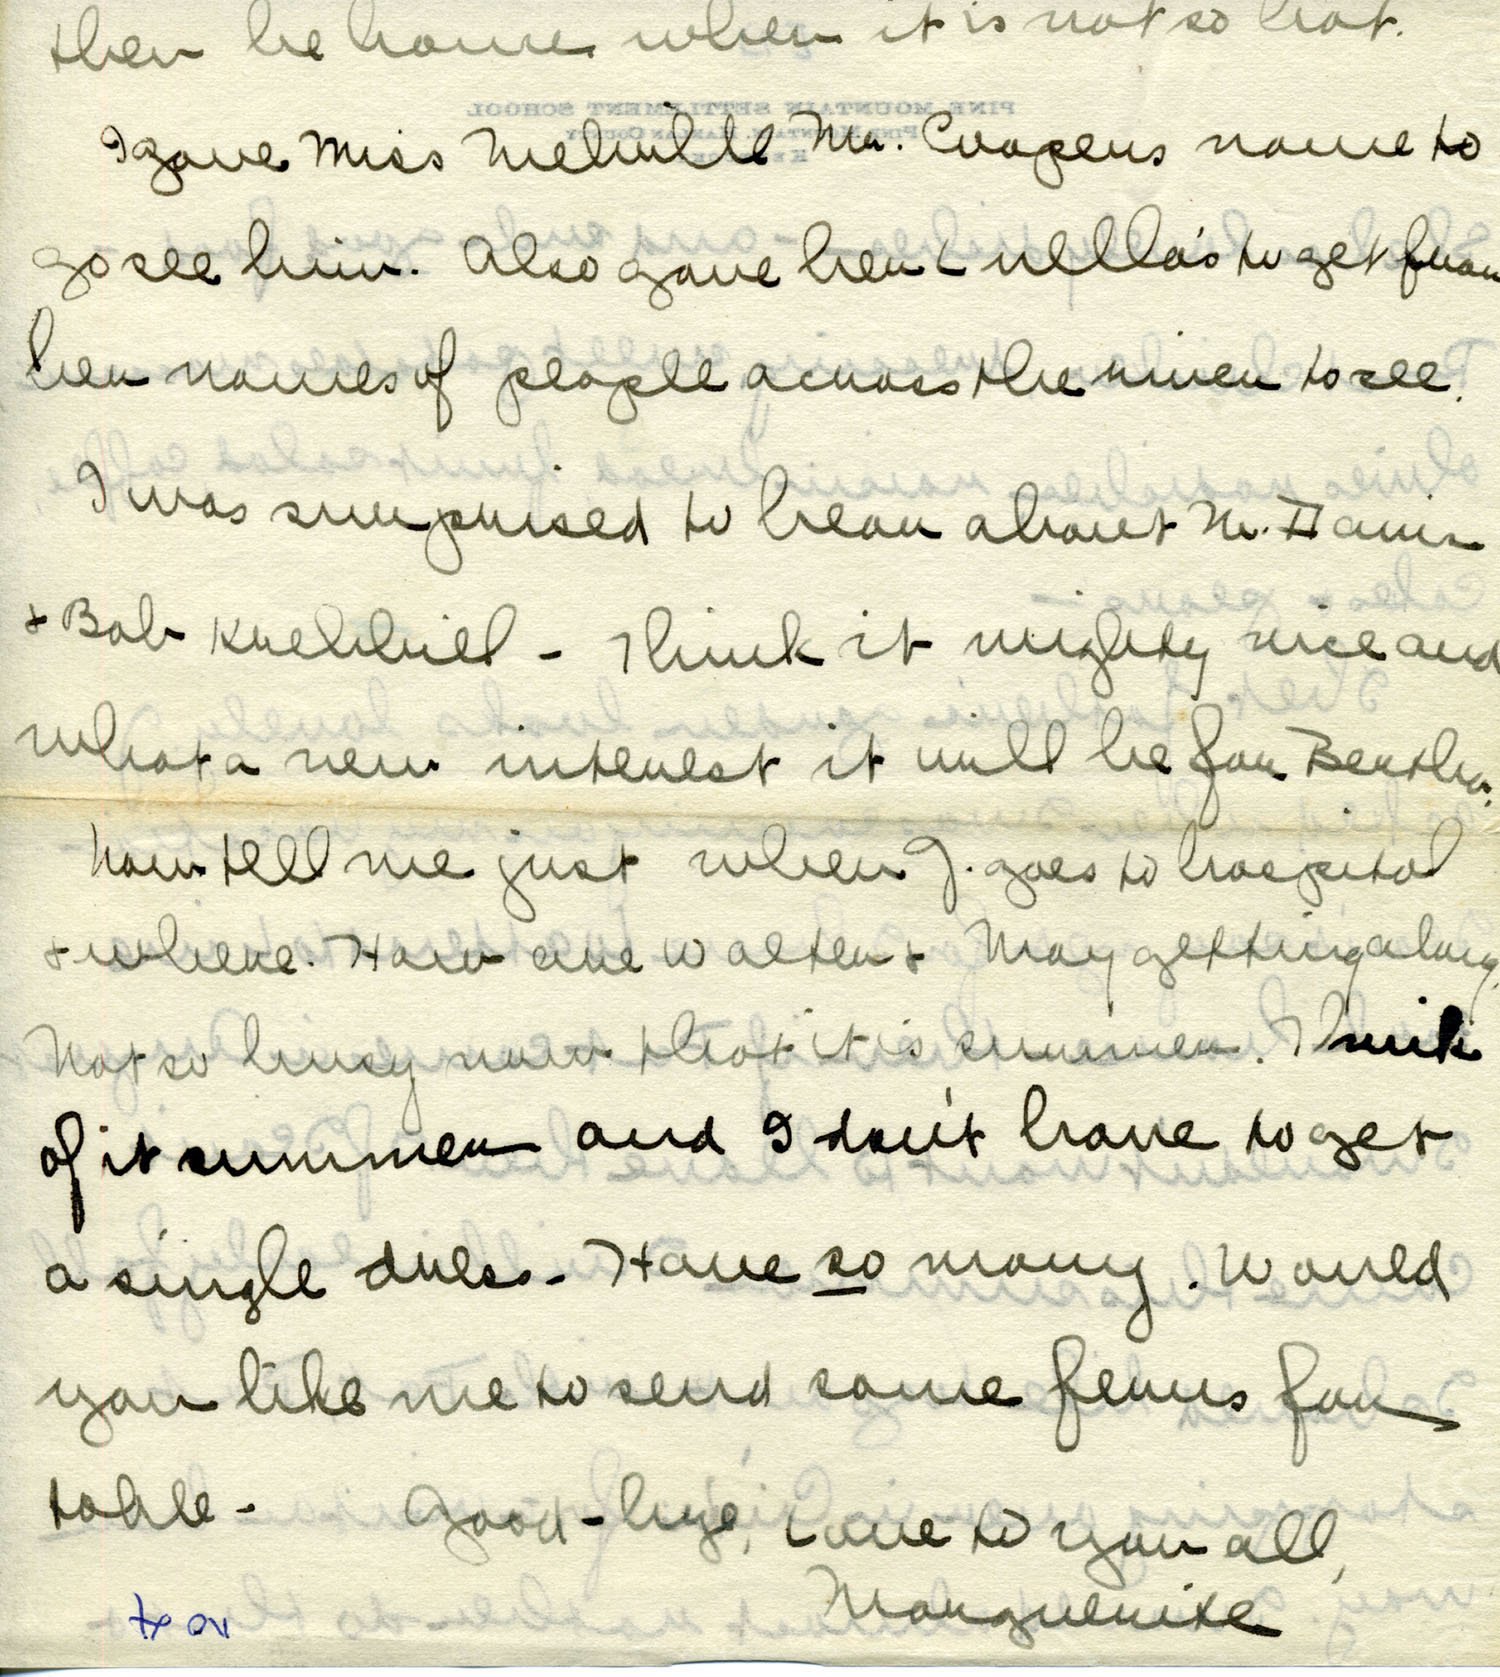 then be home when it is not so hot.
PINE MOUNTAIN SETTLEMENT SCHOOL
PINE MOUNTAIN, HARLAN COUNTY
I gave Miss Melville Mr. Coopers name to
go see him. Also gave her Luella's to get from
her names of people across the river to see.
I was surprised to hear about M. Davis
+ Bob Krehbiel - Think it mighty nice and
what a new interest it will be for Bertha.
Now tell me just when J. goes to hospital
+ where. How are Walter + May getting along.
Not so busy now that it is summer. Think
of it summer and I don't have to get
a single dress. Have so many. Would
you like me to send some ferns for
table - Good-bye, Love to you all,
Marguerite